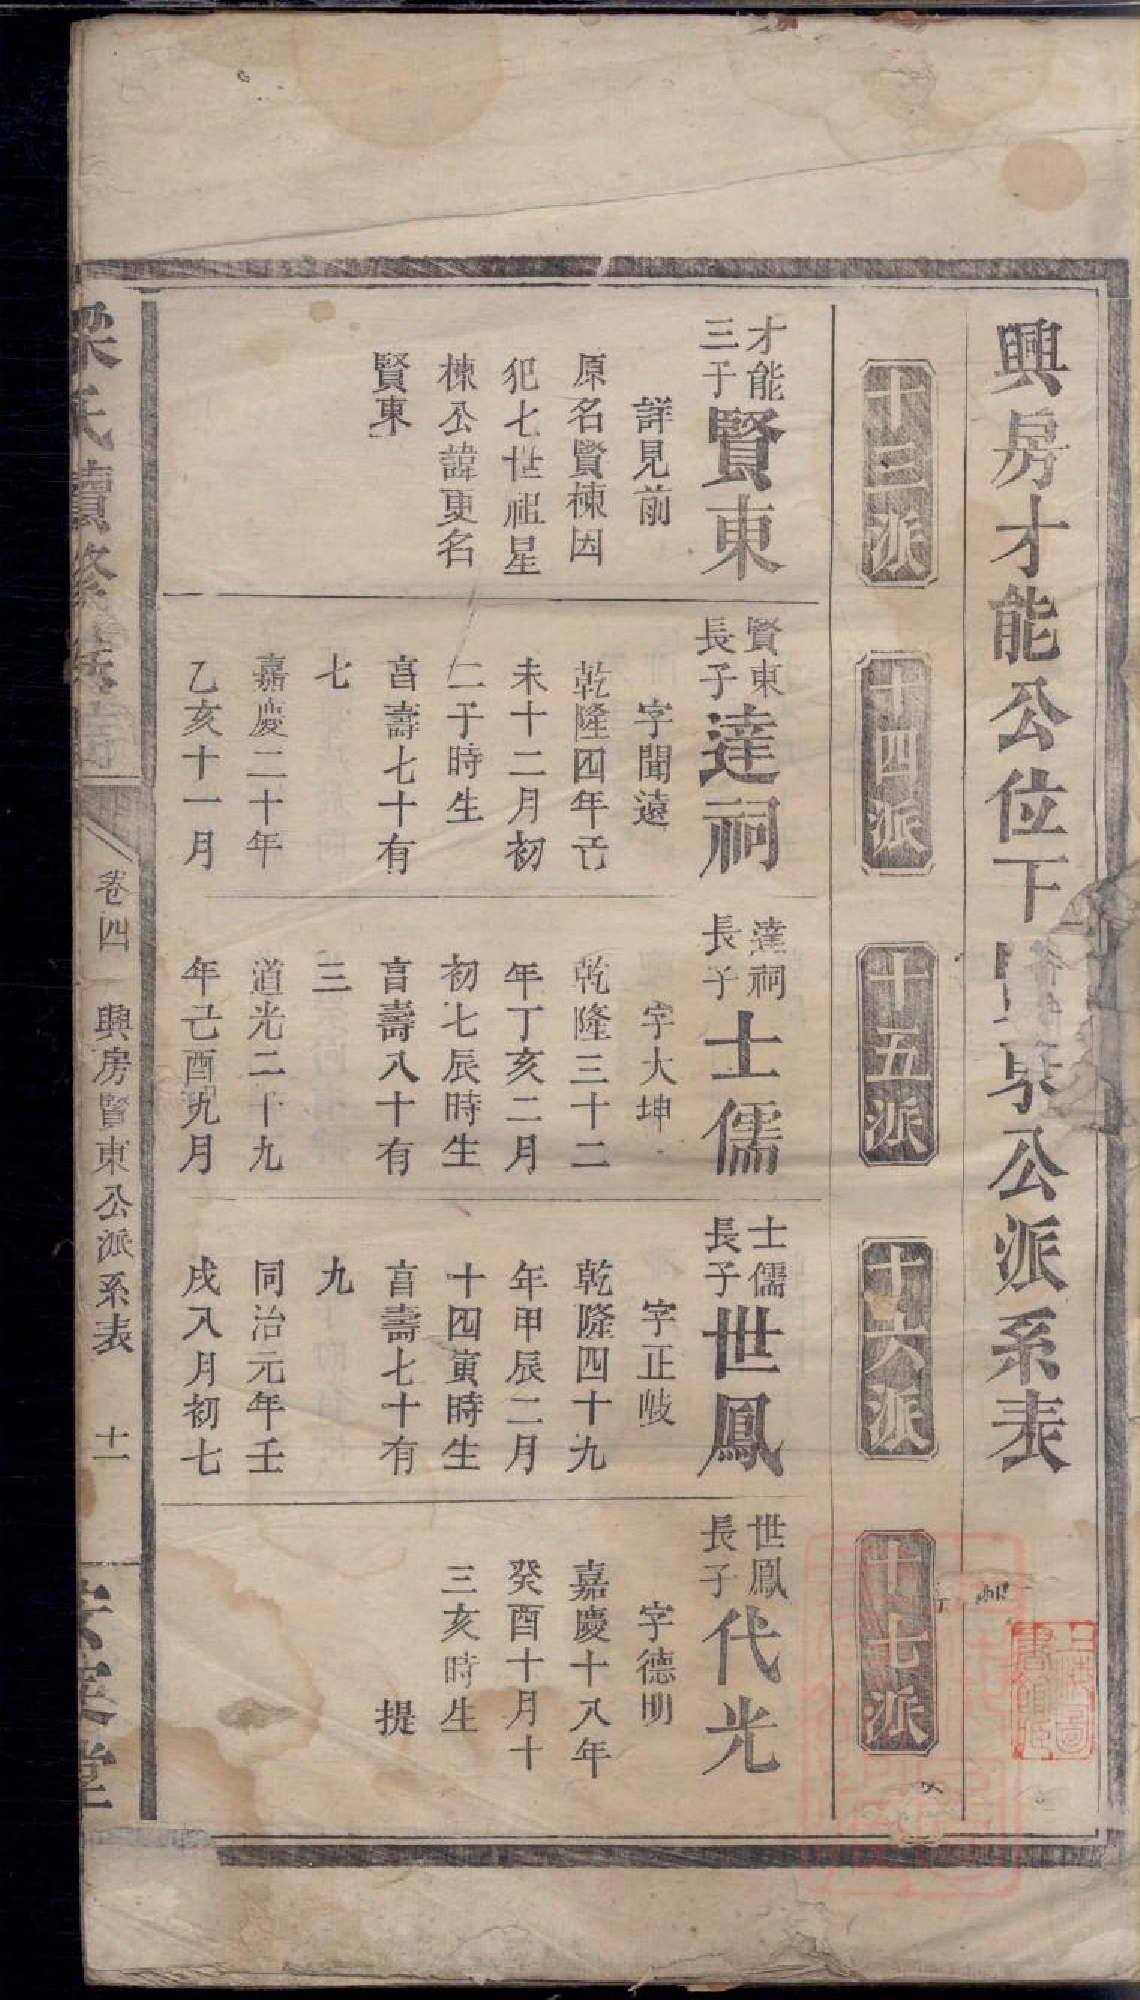 興房才能公位下賢東公派系表
十三派
十四派
十五派
十六派
十七派
才能
三子
賢東
詳見前
原名賢棟因
犯七世祖星
棟公諱更名
賢東
賢東
長子
達祠
字聞遠
乾隆四年己
未十二月初
二子時生
享壽七十有
七
嘉慶二十年
乙亥十一月
達祠
長子
士儒
字大坤
乾隆三十二
年丁亥二月
初七辰時生
享壽八十有
三
道光二十九
年己酉九月
士儒
長子
世鳳
字正岐
乾隆四十九
年甲辰二月
十四寅時生
享壽七十有
九
同治元年壬
戌八月初七
世鳳
長子
代光
字德明
嘉慶十八年
癸酉十月十
三亥時生
提
梁氏續修族
卷四
興房賢東公派系表
十一
安定堂